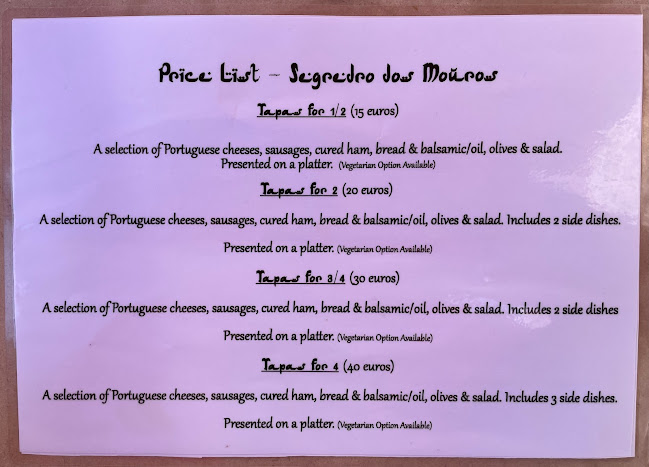 Price List - Segredro dos Mouros
Tapas for 1/2 (15 euros)
A selection of Portuguese cheeses, sausages, cured ham, bread & balsamic/oil, olives & salad.
Presented on a platter. (Vegetarian Option Available)
Tapas for 2 (20 euros)
A selection of Portuguese cheeses, sausages, cured ham, bread & balsamic/oil, olives & salad. Includes 2 side dishes.
Presented on a platter. (Vegetarian Option Available)
Tapas for 3/4 (30 euros)
A selection of Portuguese cheeses, sausages, cured ham, bread & balsamic/oil, olives & salad. Includes 2 side dishes
Presented on a platter. (Vegetarian Option Available)
Tapas for 4 (40 euros)
A selection of Portuguese cheeses, sausages, cured ham, bread & balsamic/oil, olives & salad. Includes 3 side dishes.
Presented on a platter. (Vegetarian Option Available)